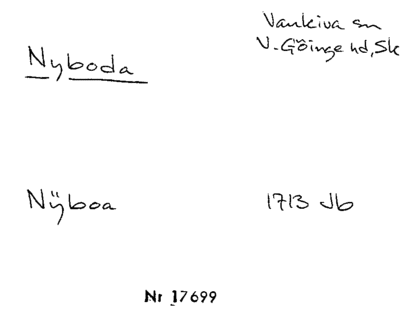 Vankiva sn
Nyboda
V. Göinge hd, Sk
Nÿboa
1713 Jb
Nr 17699